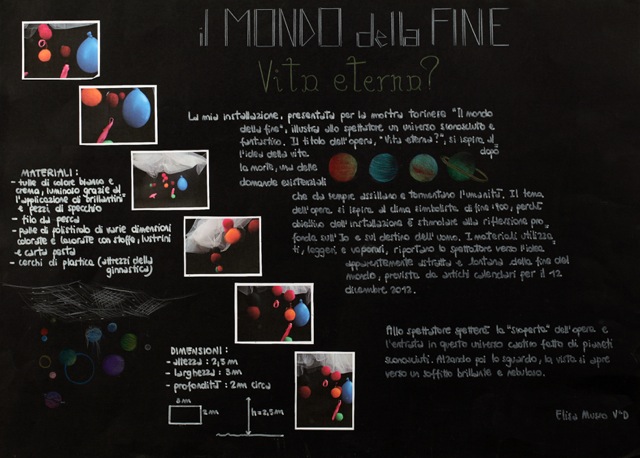 il MONDO della FINE
Vita eterna?
La mia installazione, presentata per la mostra torinese "Il mondo
della fine", illustra allo spettatore un universo sconosciuto e
fantastico. Il titolo dell'opera, "Vita eterna?", si ispira al
l'idea della vita dopo
la morte, una delle
domande esistenziali
che da sempre assillano e tormentano l'umanità. Il tema
dell'opera si ispira al clima simbolista di fine '800, perché
obiettivo dell'installazione è stimolare alla riflessione pro
fonda sull'Io e sul destino dell'uomo. I materiali utilizza
ti, leggeri e vaporosi, riportano lo spettatore verso l'idea
apparentemente astratta e lontana della fine del
mondo, prevista da antichi calendari per il 12
dicembre 2012.
Allo spettatore spetterà la "scoperta" dell'opera e
l'entrata in questo universo caotico fatto di pianeti
sconosciuti. Alzando poi lo sguardo, la vista si apre
verso un soffitto brillante e nebuloso.
Elisa Musso V°D
MATERIALI:
- tulle di colore bianco e
crema, luminoso grazie al
l'applicazione di "brillantini"
e pezzi di specchio
- filo da pesca
- palle di polistirolo di varie dimensioni
colorate e lavorate con stoffe, lustrini
e carta pesta
- cerchi di plastica (attrezzi della
ginnastica)
DIMENSIONI:
- altezza: 2,5 m
- larghezza: 3 m
- profondità: 2 m circa
3 m
2 m
h=2,5 m